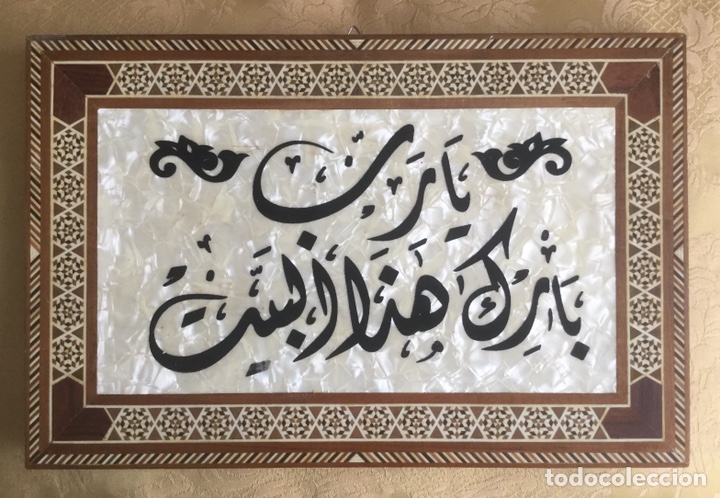 يَا رَبّ
بَارِك هَذَا البَيت
todocoleccion